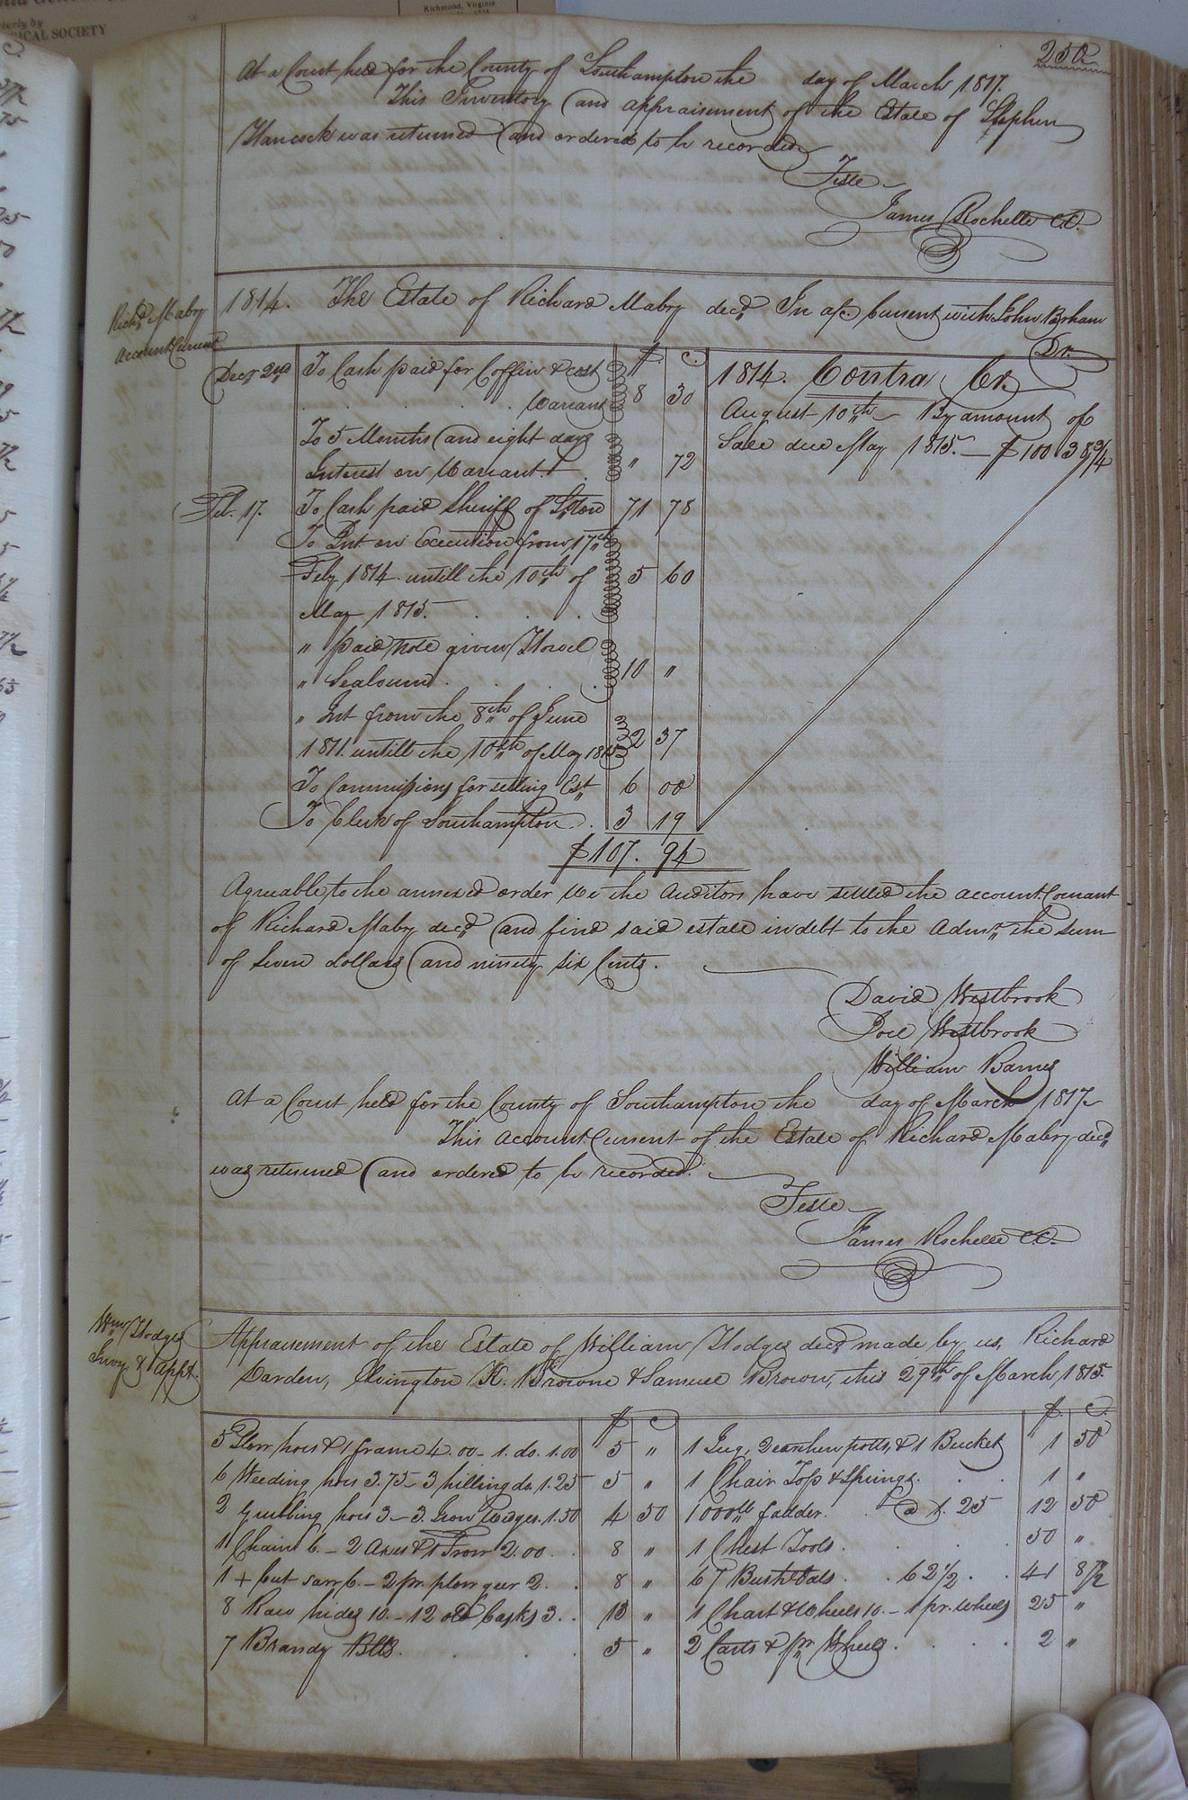 Richmond, Virginia
ICAL SOCIETY
250
At a Court held for the County of Southampton the day of March 1817.
This Inventory and appraisement of the Estate of Stephen
Hancock was returned and ordered to be recorded
Teste
James Rochelle CC.
Richd Mabry
Account Current
1814. The Estate of Richard Mabry decd In a/c Current with John Barham
Dr.
$ c.
Decr 2nd To Cash paid for Coffin & cost
Warrant 8 30
To 5 Months and eight days
Interest on Warrant " 72
Feb. 17. To Cash paid Sheriff of S,,ton 71 78
To Int on Execution from 17th
Feby 1814 untill the 10th of 5 60
May 1815.
" paid note given Howel
" 10 "
" Int from the 8th of June
1811 untill the 10th of May 1815 2 37
To Commissions for selling Est 6 00
To Clerk of Southampton 3 19
$107. 94
1814. Contra Cr.
August 10th By amount of
Sale due May 1815. $100 38
Agreable to the annexed order We the Auditors have settled the account Courant
of Richard Mabry decd and find said estate indebt to the Admr the sum
of seven dollars and ninety six Cents.
David Westbrook
Joel Westbrook
William Barnes
At a Court held for the County of Southampton the day of March 1817
This Account Current of the Estate of Richard Mabry decd
was returned and ordered to be recorded.
Teste
James Rochelle CC.
Wm Hodges
Invy & Appt.
Appraisement of the Estate of William Hodges decd made by us, Richard
Darden, Elvington K. Browne & Samuel Brown, this 29th of March, 1815.
$ C.
5 Plow hoes & 1 frame 4.00 - 1. do. 1.00 5 "
6 Weeding hoes 3.75 - 3 hilling do. 1.25 5 "
2 Grubbing hoes 3 - 3. Iron Wedges. 1.50 4 50
11 Chains 6. - 2 Axes & 1 Frow 2.00 8 "
1 + cut saw 6. - 2 pr. plow geer 2. 8 "
8 Raw hides 10. - 12 old Casks 3. 13 "
7 Brandy Blls. 5 "
$ C.
1 Jug, Dearthen potts, & 1 Bucket 1 50
1 Chair Top & Springs. 1 "
1000lb fodder. @ 1.25 12 50
1 Chest Tools. 50 "
67 Bush Oats. 62 1/2. 41 87 1/2
1 Chart & Wheels 10. - 1 pr. Wheels 25 "
2 Carts & pr Wheels. 2 "